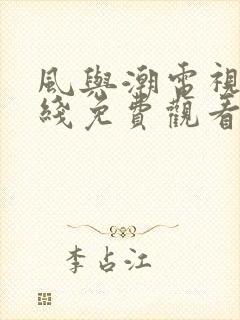 風與潮電視
綫免費觀看
李占江